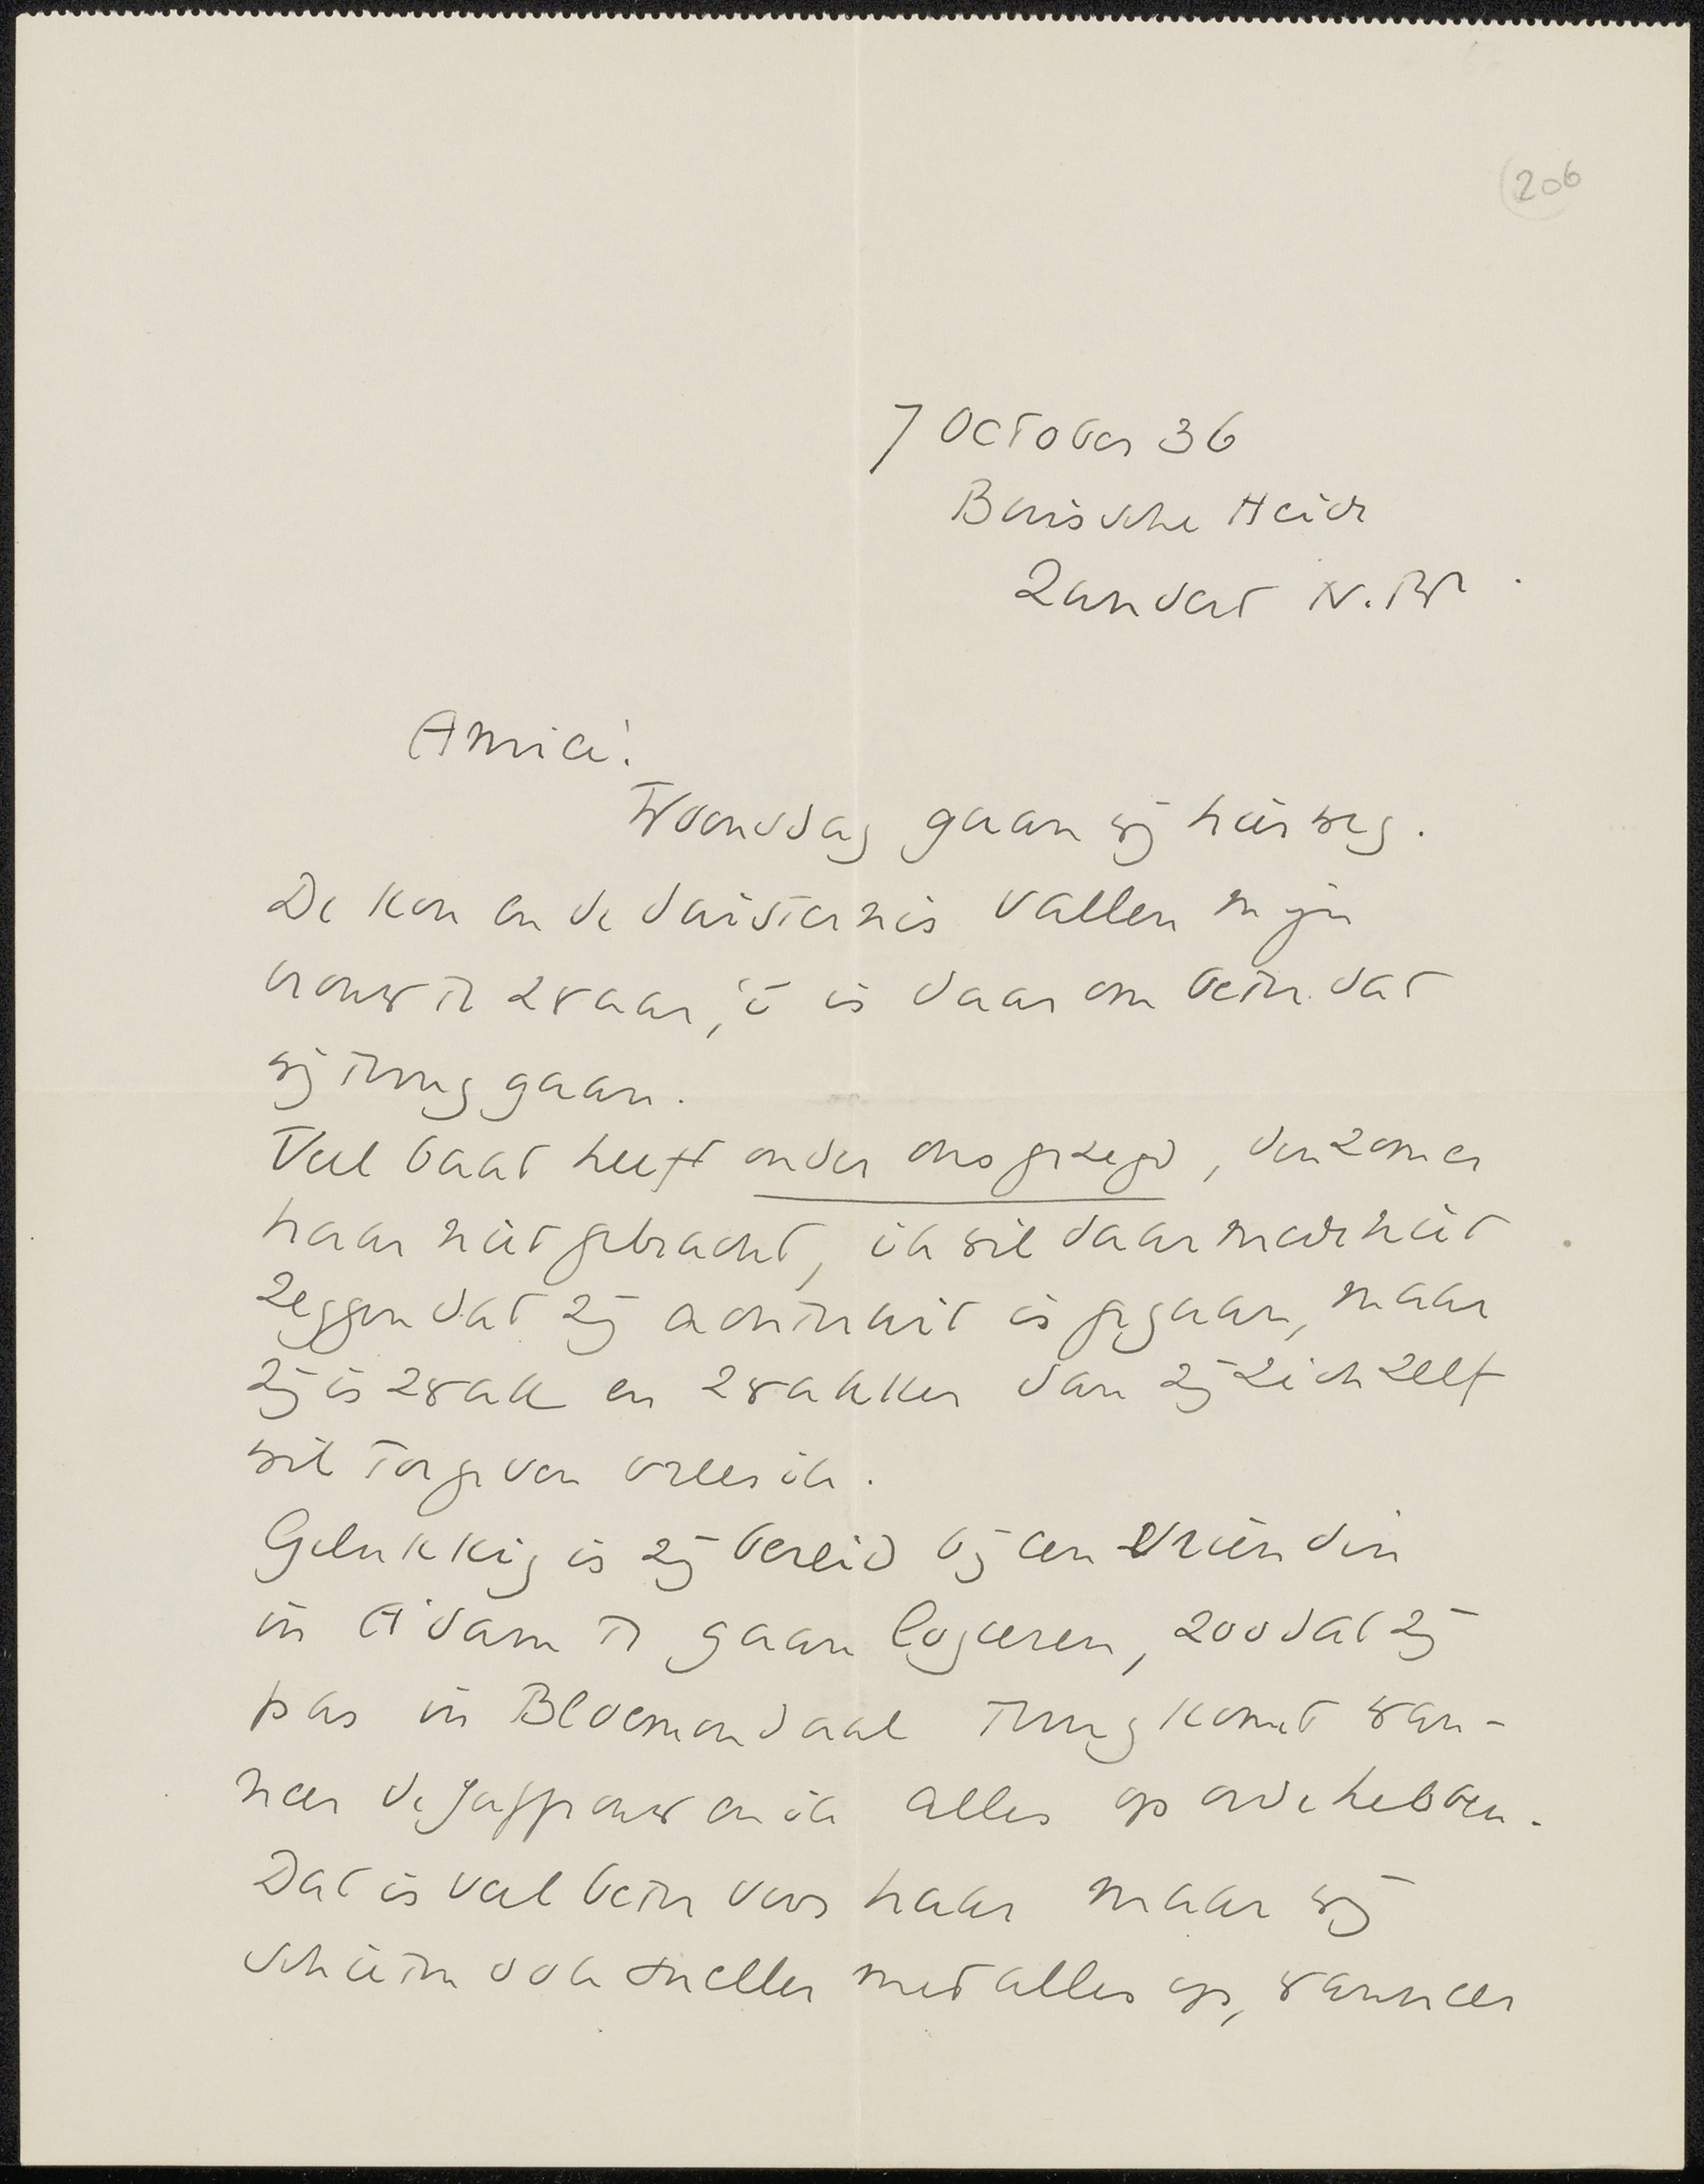 206
7 October 36
Buissche Heide
Zundert N.Br.
Amice!
Woensdag gaan wij hier weg.
De kou en de duisternis vallen mijn
vrouw te zwaar, 't is daarom beter dat
wij terug gaan.
Veel baat heeft onder ons gezegd, den zomer
haar niet gebracht, ik wil daarmede niet
zeggen dat zij achteruit is gegaan, maar
zij is zwak en zwakker dan zij zich zelf
wil toegeven vrees ik.
Gelukkig is zij bereid bij een vriendin
in A'dam te gaan logeeren, zoodat zij
pas in Bloemendaal terug komt wan-
neer de juffrouw en ik alles op orde hebben.
Dat is veel beter voor haar maar wij
schieten ook sneller met alles op, wanneer